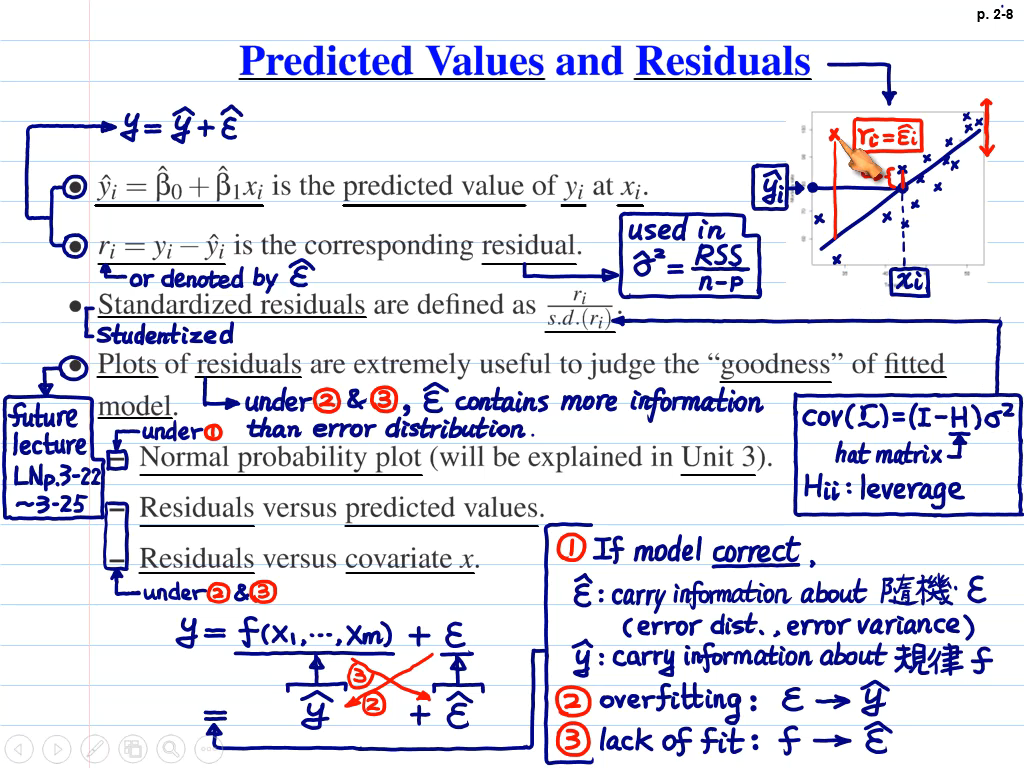 p. 2-8
Predicted Values and Residuals
y = ŷ + ε̂
rᵢ = ε̂ᵢ
ŷᵢ = β̂₀ + β̂₁xᵢ is the predicted value of yᵢ at xᵢ.
ŷᵢ
xᵢ
• rᵢ = yᵢ − ŷᵢ is the corresponding residual.
or denoted by ε̂
used in
σ̂² = RSS / n-p
• Standardized residuals are defined as rᵢ / s.d.(rᵢ).
studentized
• Plots of residuals are extremely useful to judge the “goodness” of fitted
model.
under ② & ③, ε̂ contains more information
than error distribution.
under ①
future
lecture
LNp.3-22
~3-25
cov(ε̂)=(I-H)σ²
hat matrix
Hᵢᵢ : leverage
– Normal probability plot (will be explained in Unit 3).
– Residuals versus predicted values.
– Residuals versus covariate x.
under ② & ③
y = f(x₁,⋯,xₘ) + ε
③
②
= ŷ + ε̂
① If model correct,
ε̂ : carry information about 隨機 ε
(error dist., error variance)
ŷ : carry information about 規律 f
② overfitting : ε → ŷ
③ lack of fit : f → ε̂